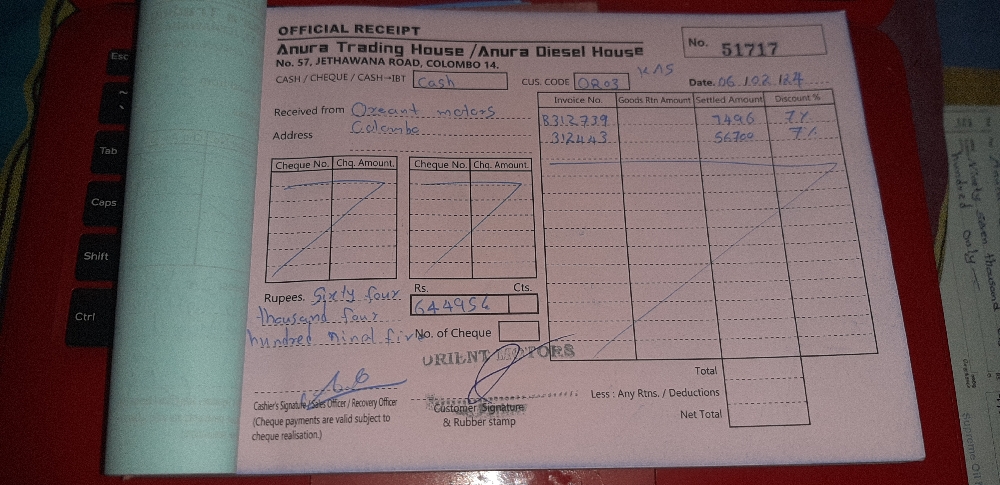 OFFICIAL RECEIPT
Anura Trading House /Anura Diesel House
No. 57, JETHAWANA ROAD, COLOMBO 14.
No. 51717
CASH / CHEQUE / CASH→IBT Cash
CUS. CODE OR03
Date. 06.02.124
Received from Oreant motors
Address Colombo
Invoice No. Goods Rtn Amount Settled Amount Discount %
B312739 7496 7%
312443 56700 7%
Cheque No. Chq. Amount. Cheque No. Chq. Amount.
Rupees. Sixty four
thousand four
hundred ninel five
Rs. Cts.
644954
No. of Cheque
ORIENT MOTORS
Cashier's Signature / Sales Officer / Recovery Officer
(Cheque payments are valid subject to
cheque realisation.)
Customer Signature
& Rubber stamp
Total
Less : Any Rtns. / Deductions
Net Total
Esc
~
Tab
Caps
Shift
Ctrl
thousand
hundred only